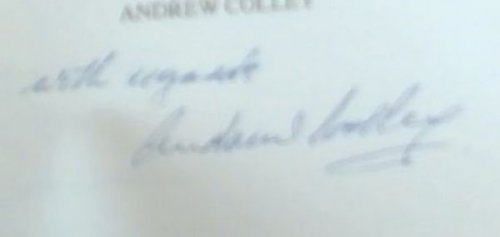 ANDREW COLLEY
with regards
Andrew Colley